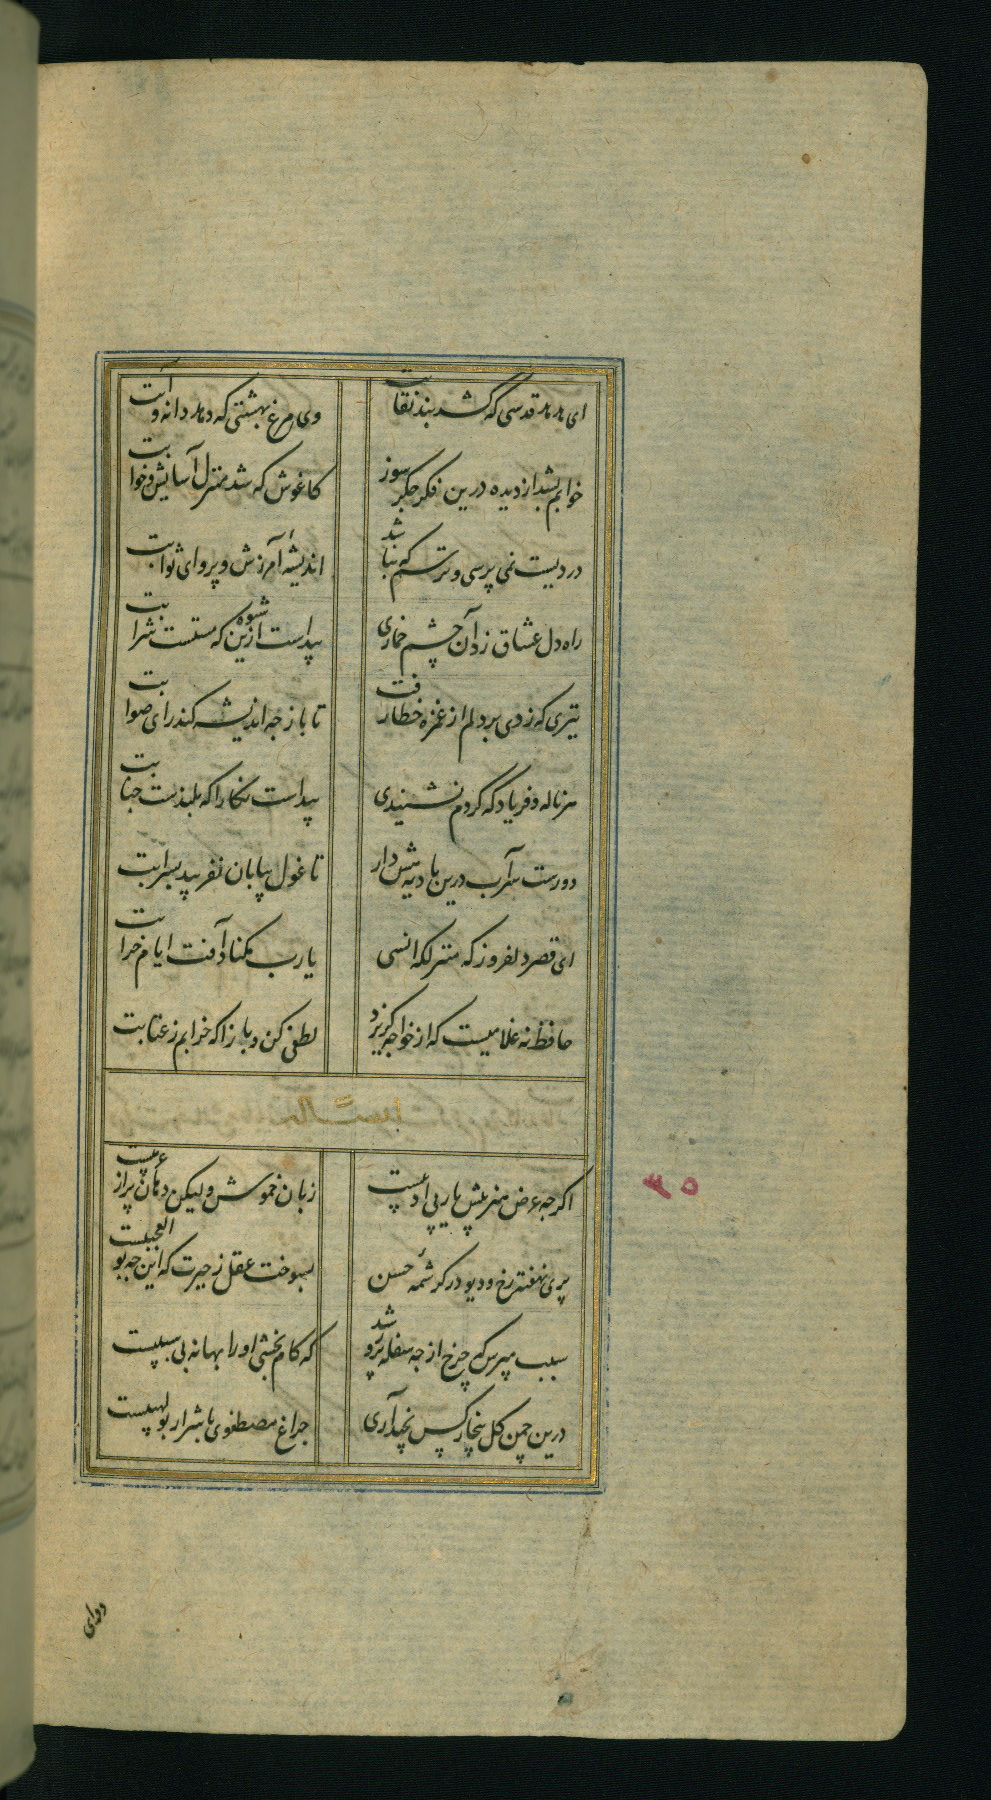 ای شاهد قدسی که کشد بند نقابت
وی مرغ بهشتی که دهد دانه و آبت
خوابم بشد از دیده درین فکر جکر سوز
کاغوش که شد منزل آسایش و خوابت
درویش نمی پرسی و ترسم که نباشد
اندیشهٔ آمرزش و پروای ثوابت
راه دل عشاق زد آن چشم خماری
پیداست ازین شیوه که مستست شرابت
تیری که زدی بر دلم از غمزه خطا رفت
تا باز جه اندیشه کند رای صوابت
هر ناله و فریاد که کردم نشنیدی
پیداست نکارا که بلندست جنابت
دورست سر آب درین بادیه هش دار
تا غول بیابان نفریبد بسرابت
ای قصر دلفروز که منزلکه انسی
یا رب مکناد آفت ایام خرابت
حافظ نه غلامیست که از خواجه کریزد
لطفی کن و باز آ که خرابم ز عتابت
اکر جه عرض هنر پیش یار بی ادبیست
زبان خموش ولیکن دهان پر از عربیست
پری نهفته رخ و دیو در کرشمهٔ حسن
بسوخت عقل ز حیرت که این جه بو العجبیست
سبب مپرس که چرخ از جه سفله پرور شد
که کام بخشی او را بهانه بی سببیست
درین چمن کل بیخار کس نچید آری
جراغ مصطفوی با شرار بولهبیست
۳۵
دوای